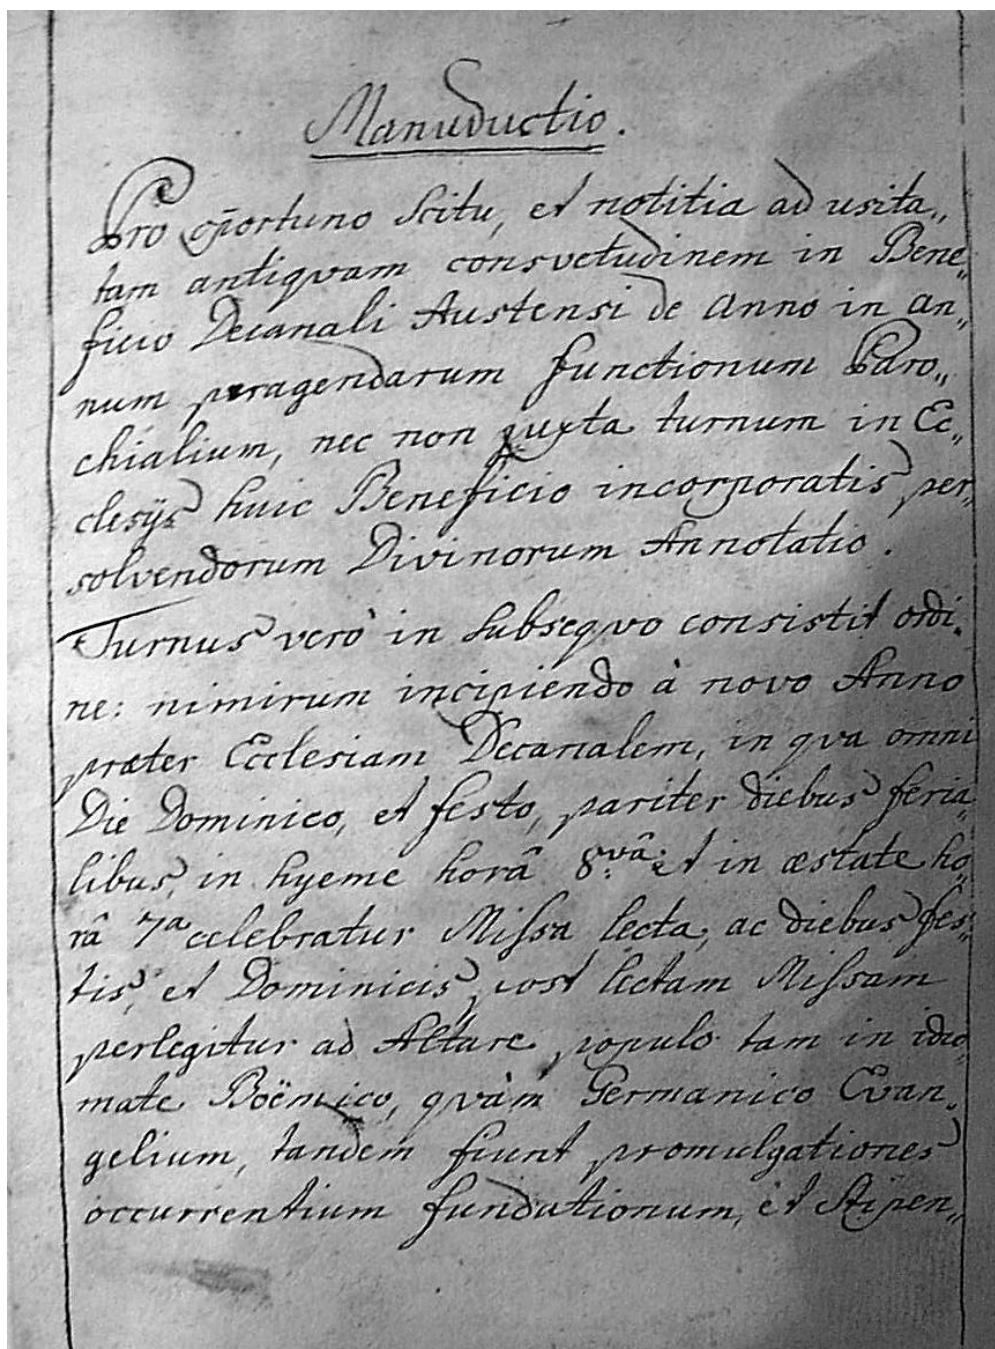 Manuductio.
Pro op̄ortuno Scitu, et notitia ad usita„
tam antiqvam consvetudinem in Bene„
ficio Decanali Austensi de Anno in an„
num peragendarum functionum Paro„
chialium, nec non juxta turnum in Ec„
clesijs huic Beneficio incorporatis per„
solvendorum Divinorum Annotatio.
Turnus verò in subseqvo consistit ordi„
ne: nimirum incipiendo à novo Anno
præter Ecclesiam Decanalem, in qva omni
Die Dominico, et festo, pariter diebus feria„
libus, in hyeme horâ 8.vâ et in æstate ho„
râ 7a celebratur Missa lecta, ac diebus fes„
tis, et Dominicis, post lectam Missam
perlegitur ad Altare populo tam in idio„
mate Boëmico, qvàm Germanico Evan„
gelium, tandem fiunt promulgationes
occurrentium fundationum, et Stipen„